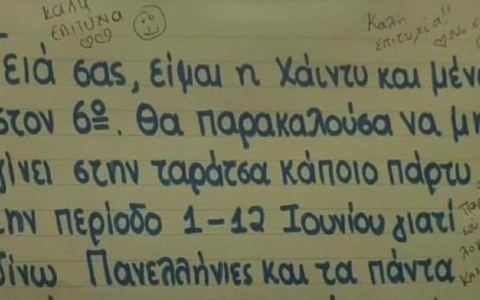 καλή
επιτυχία
Καλή
επιτυχία!!
Γειά σας, είμαι η Χάιντυ και μένω
στον 6º. Θα παρακαλούσα να μη
γίνει στην ταράτσα κάποιο πάρτυ
την περίοδο 1-12 Ιουνίου γιατί
δίνω Πανελλήνιες και τα πάντα